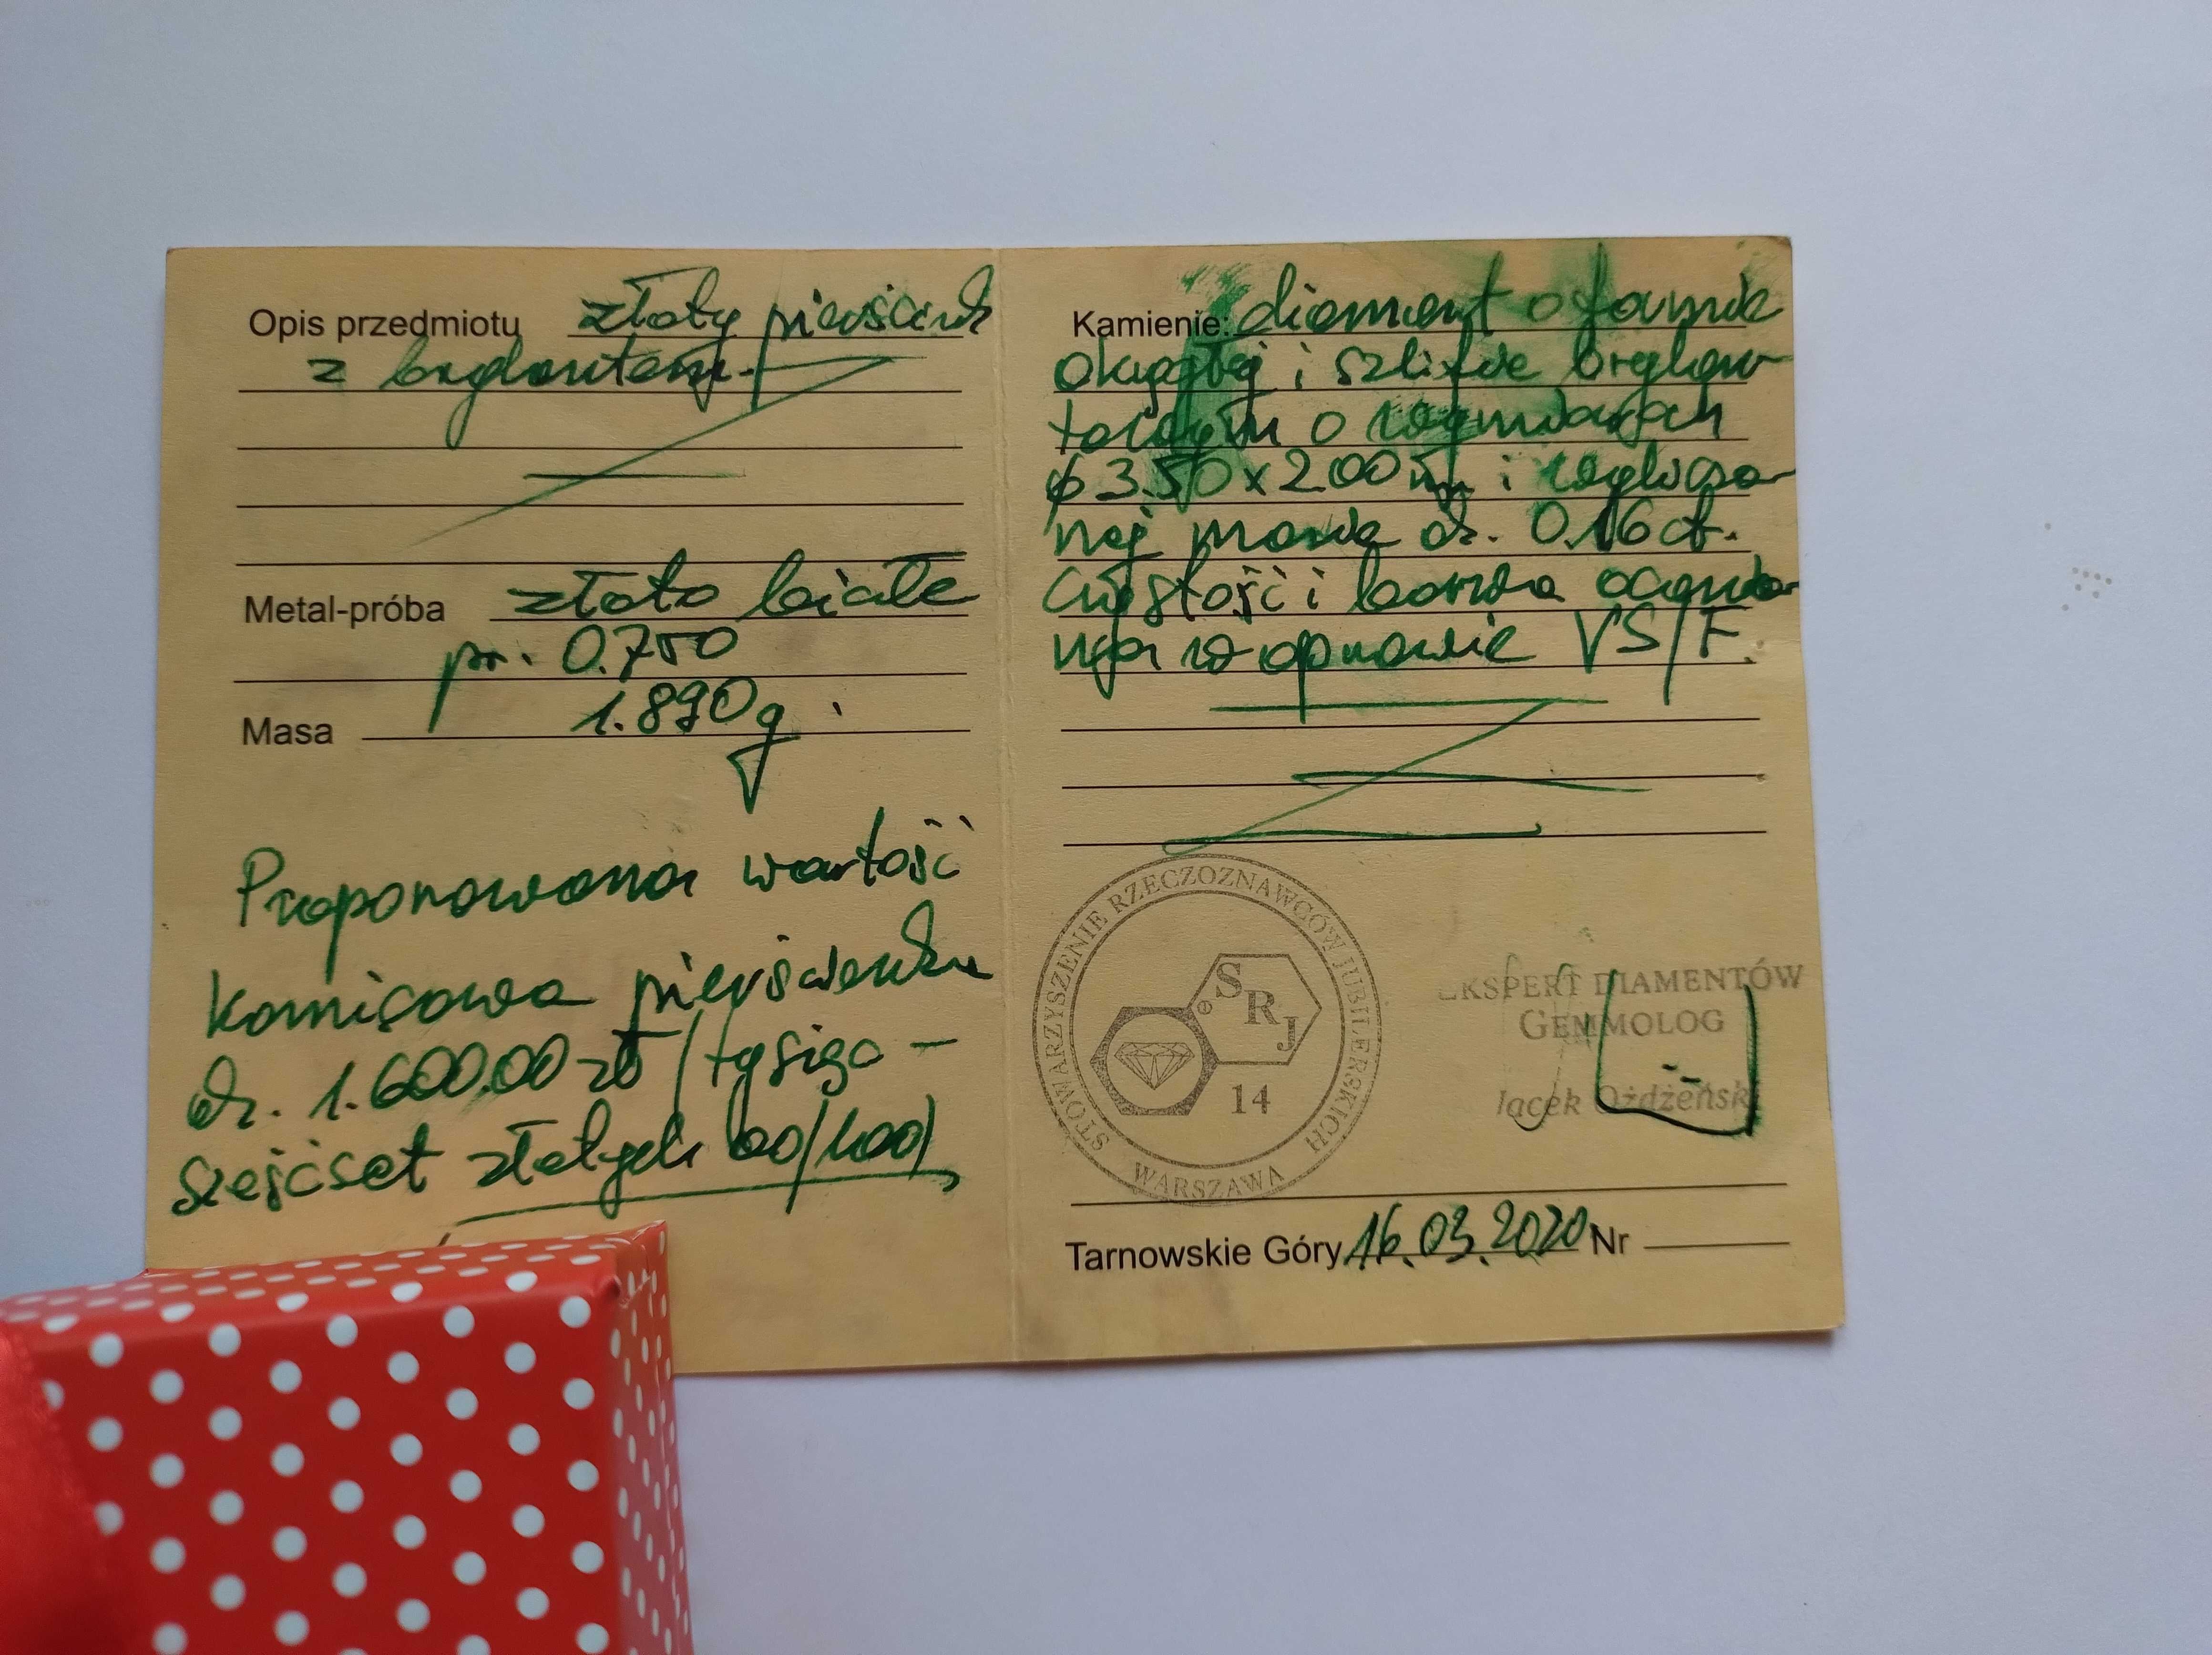 Opis przedmiotu złoty pierścionek
z brylantem.
Metal-próba złoto białe
pr. 0.750
Masa 1.890g.
Proponowana wartość
komisowa pierścionka
ok. 1.600.00 zł /tysiąc
sześćset złotych 00/100/
Kamienie: diament o formie
okrągłej i szlifie brylan
towym o wymiarach
ϕ 3.50 x 2.00 mm i wyliczo
nej masie ok. 0.16 ct.
Czystość i barwa ocenio
na w oprawie VS/F.
STOWARZYSZENIE RZECZOZNAWCÓW JUBILERSKICH
WARSZAWA
SRJ
14
EKSPERT DIAMENTÓW
GEMMOLOG
Jacek Ożdżeński
Tarnowskie Góry 16.03.2020 Nr